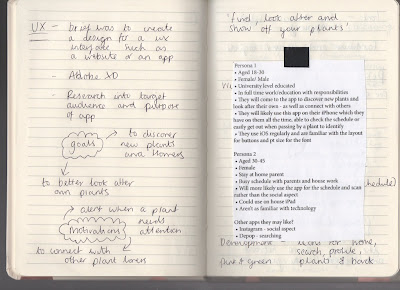 UX - brief was to create
a design for a UX
interface such as
a website or an app
- Adobe XD
- Research into target
audience and purpose
of app
goals
→ to discover
new plants
and flowers
to better look after
own plants
→ alert when a plant
needs
attention
motivations
to connect with
other plant lovers
'find, look after and
show off your plants'
Persona 1
• Aged 18-30
• Female/ Male
• University level educated
• In full time work/education with responsibilities
• They will come to the app to discover new plants and
look after their own - as well as connect with others
• They will likely use this app on their iPhone which they
have on them all the time, able to check the schedule or
easily get out when passing by a plant to identify
• They use iOS regularly and are familiar with the layout
for buttons and pt size for the font
Persona 2
• Aged 30-45
• Female
• Stay at home parent
• Busy schedule with parents and house work
• Will more likely use the app for the schedule and scan
rather than the social aspect
• Could use on house iPad
• Aren't as familiar with technology
Other apps they may like?
• Instagram - social aspect
• Depop - searching
Development - icons for home,
search, profile,
plants & back